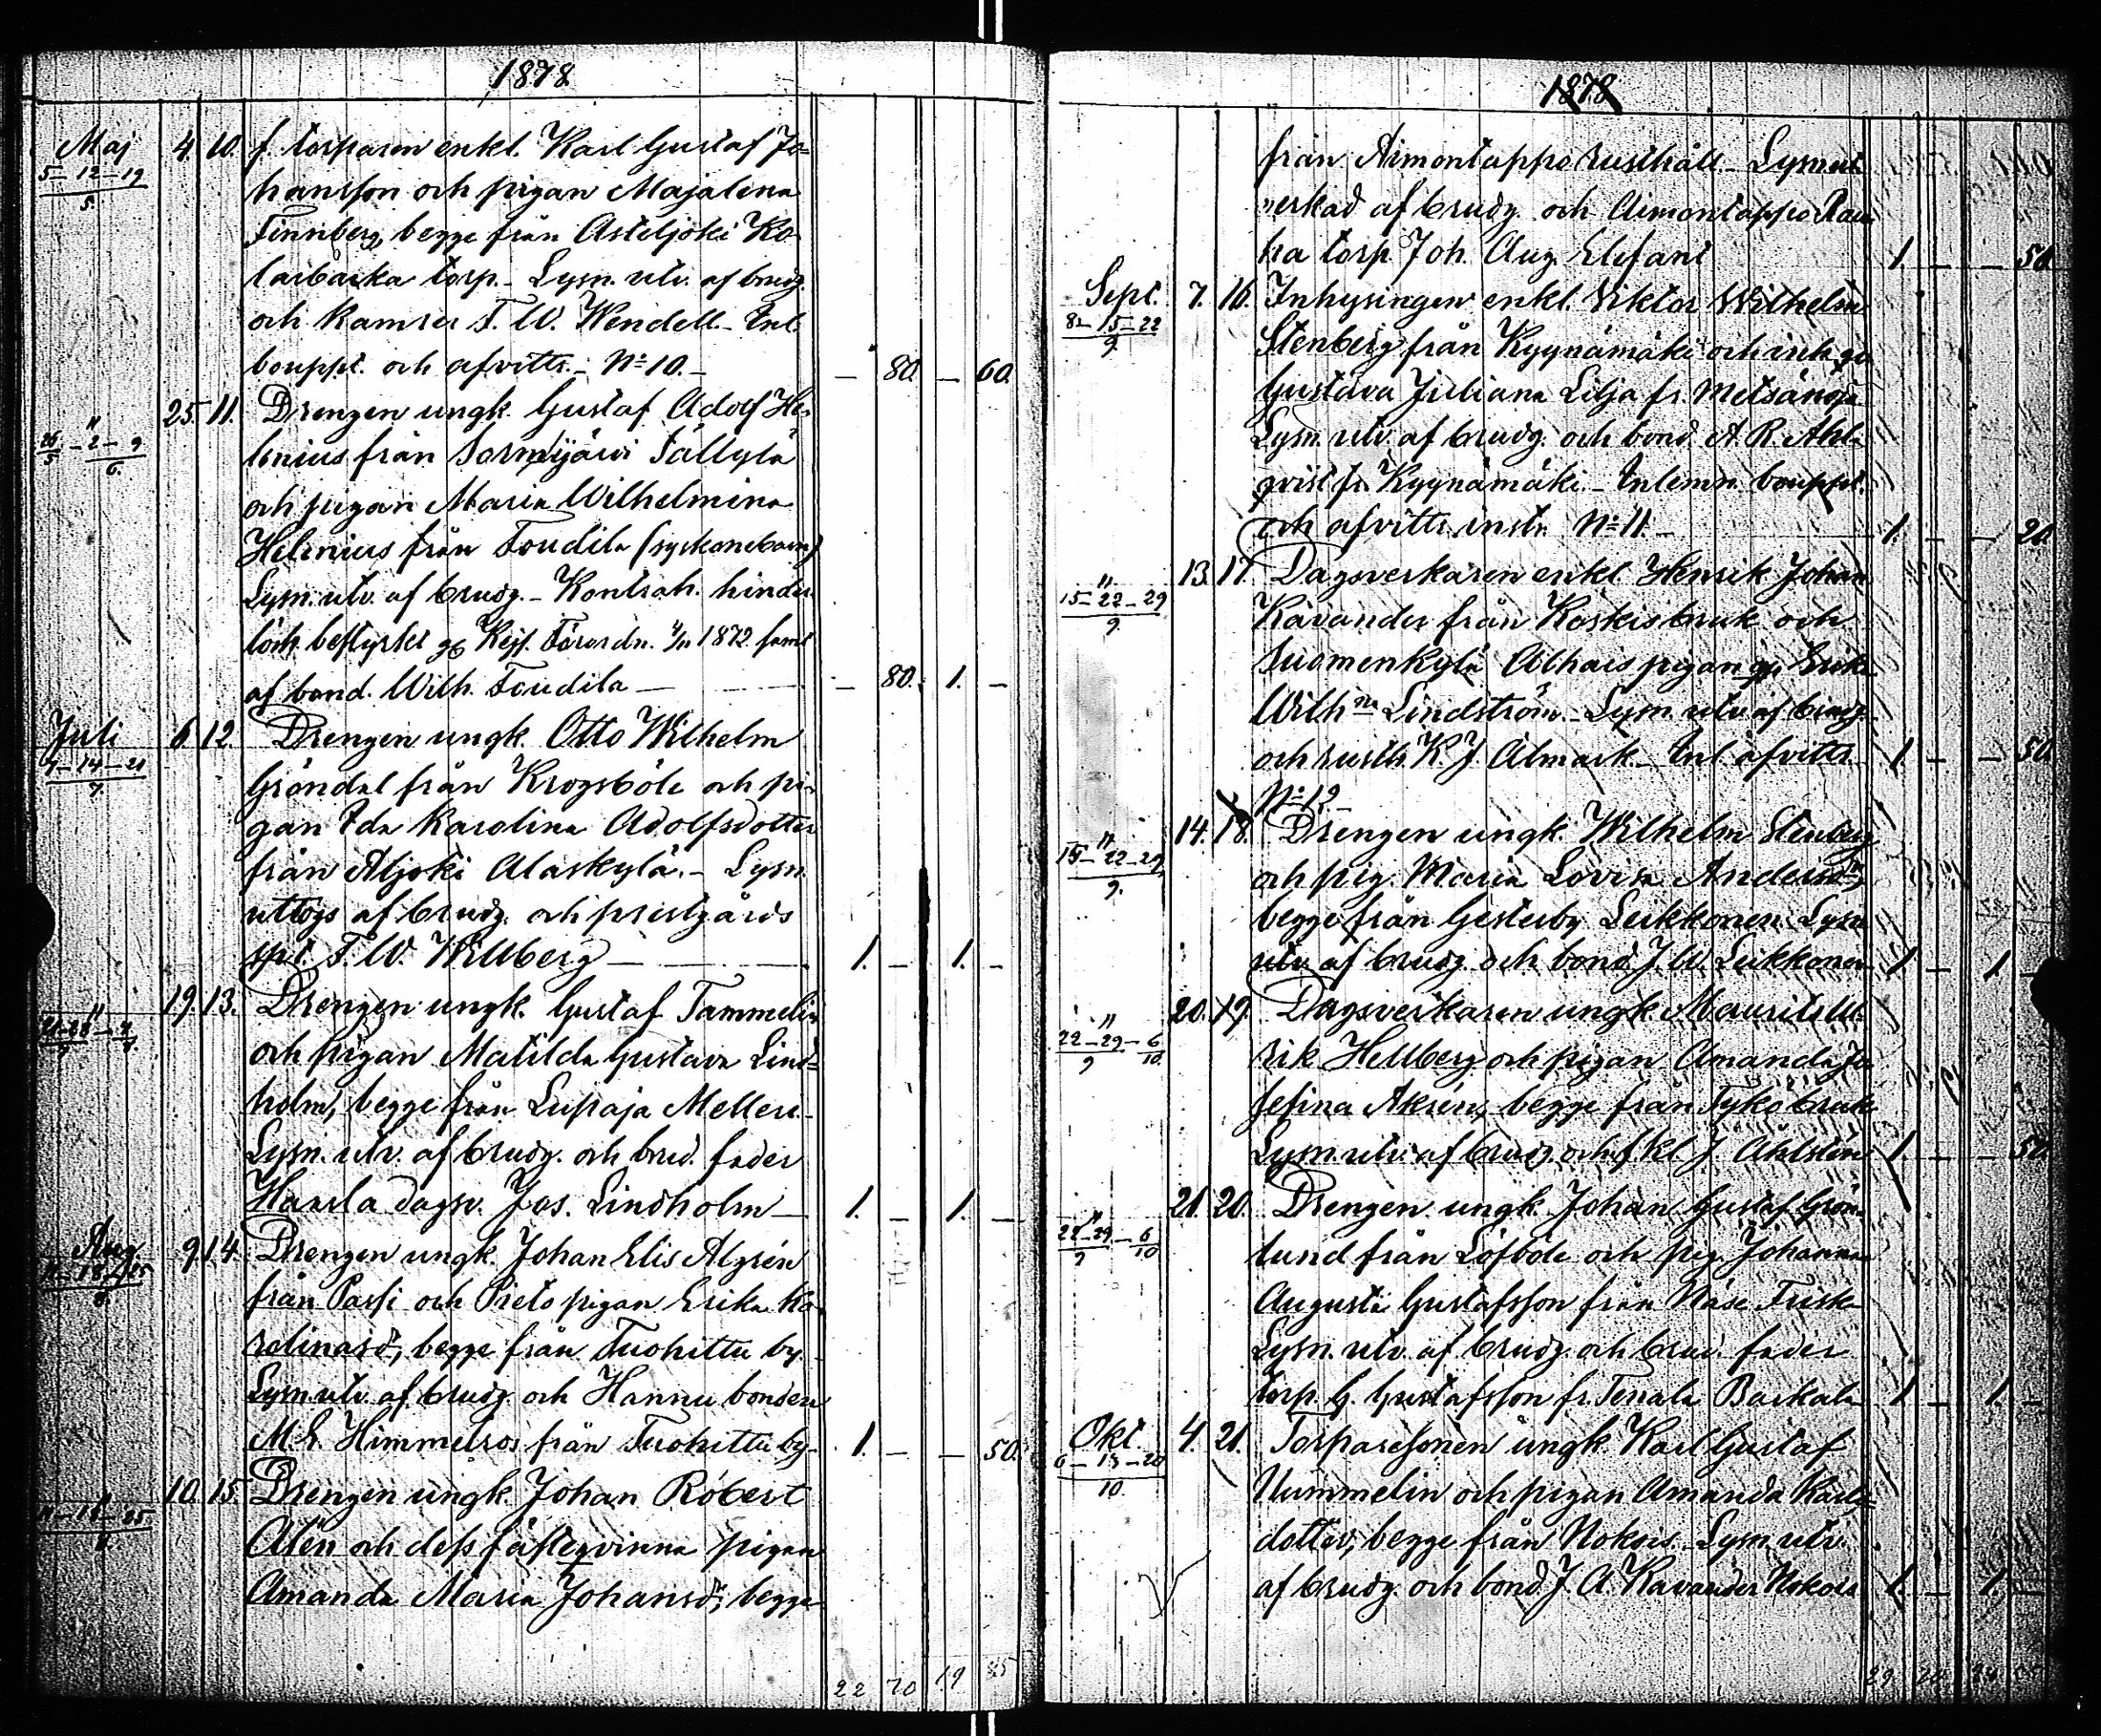 1878
Maj 4. 10. f. torparen enkl. Karl Gustaf Jo-
5-12-19/5 hansson och pigan Majalena
Finnberg, begge från Asteljoki Ko-
torp.- Lysn. utv. af brudg.
och kamrer F. W. Wendell.- Inl.
bouppt. och afvittr.- No 10.- — 80. — 60.
" 25. 11. Drengen ungk. Gustaf Adolf He-
26/5-2-9/6 lenius från Sormijärvi Tällylä
och pigan Maria Wilhelmina
Helenius från Toudila (syskonebarn)
Lysn. utv. af brudg.- Kontrah. hinder
löch. bestyrkt Kejs. Förordn. 1872 samt
af bond. Wilh. Toudila — — 80. 1. —
Juli 6 12. Drengen ungk. Otto Wilhelm
7-14-21/7 Gröndal från Krogsböle och pi-
gan Ida Karolina Adolfsdotter
från Aljoki Alaskylä.- Lysn.
uttogs af brudg. och prestgårds
sp.t. F. W. Willberg — 1. — 1. —
" 19. 13. Drengen ungk. Gustaf Tammelin
21-28/7-4/8 och pigan Matilda Gustava Lind-
holm, begge från Lupaja Melleri-
Lysn. utv. af brudg. och brud. fader
Haarla dagsv. Jos. Lindholm — 1. — 1. —
Aug. 9. 14. Drengen ungk. Johan Elis Algrén
11-18-25/8 från Passi och Prets pigan Erika Ka-
rolinasdr, begge från Tuohittu by.
Lysn. utv. af brudg. och Hannu bonden
M. E. Himmelros från Tuohittu by- 1. — — 50.
" 10. 15. Drengen ungk. Johan Robert
11-18-25/8 Alén och dess fästeqvinna pigan
Amanda Maria Johansdr, begge
22 70 19 85
1878
från Aimontappo rusthåll.- Lysn. ut-
verkad af brudg. och Aimontappo Rau-
ha torp. Joh. Aug. Elefant 1. — — 50.
Sept. 7. 16. Inhysingen enkl. Viktor Wilhelm
8-15-22/9 Stenberg från Kyynämäki och inh.
Gustava Juliana Lilja fr. Metsänoja
Lysn. utv. af brudg. och bond. A. R. Ahl-
qvist fr. Kyynämäki.- Inlemn. bouppt.
och afvittr. instr. No 11.- 1. — — 20
" 13. 17. Dagsverkaren enkl. Henrik Johan
15-22-29/9 Kavander från Koskis bruk och
Suomenkylä Alhais pigan Erika
Wilhna Lindström.- Lysn. utv. af brudg.
och rusth. K. J. Almark.- Inl. afvittr. 1. — — 50.
No 12
" 14. 18. Drengen ungk. Wilhelm Stenberg
15-22-29/9 och pig. Maria Lovisa Andersdr,
begge från Gesterby Leikkonen. Lysn.
utv. af brudg. och bond. J. W. Leikkonen 1. — 1. —
" 20. 19. Dagsverkaren ungk. Maurits
22-29/9-6/10 rik Hellberg och pigan Amanda Jo-
sefina Akrén, begge från Tykö bruk
Lysn. utv. af brudg. och f. kl. J. Ahlstén 1. — — 50.
" 21. 20. Drengen ungk. Johan Gustaf Grön-
22-29/9-6/10 lund från Löfböle och pig. Johanna
Augusta Gustafsson från Näse Frisk
Lysn. utv. af brudg. och brud. fader
torp. G. Gustafsson fr. Terrala Barkala 1. — 1. —
Okt. 4. 21. Torparesonen ungk. Karl Gustaf
6-13-20/10 Nummelin och pigan Amanda Karls-
dotter, begge från Nokois. Lysn. utv.
af brudg. och bond. J. A. Kavander Nokois 1. — 1. —
29 24